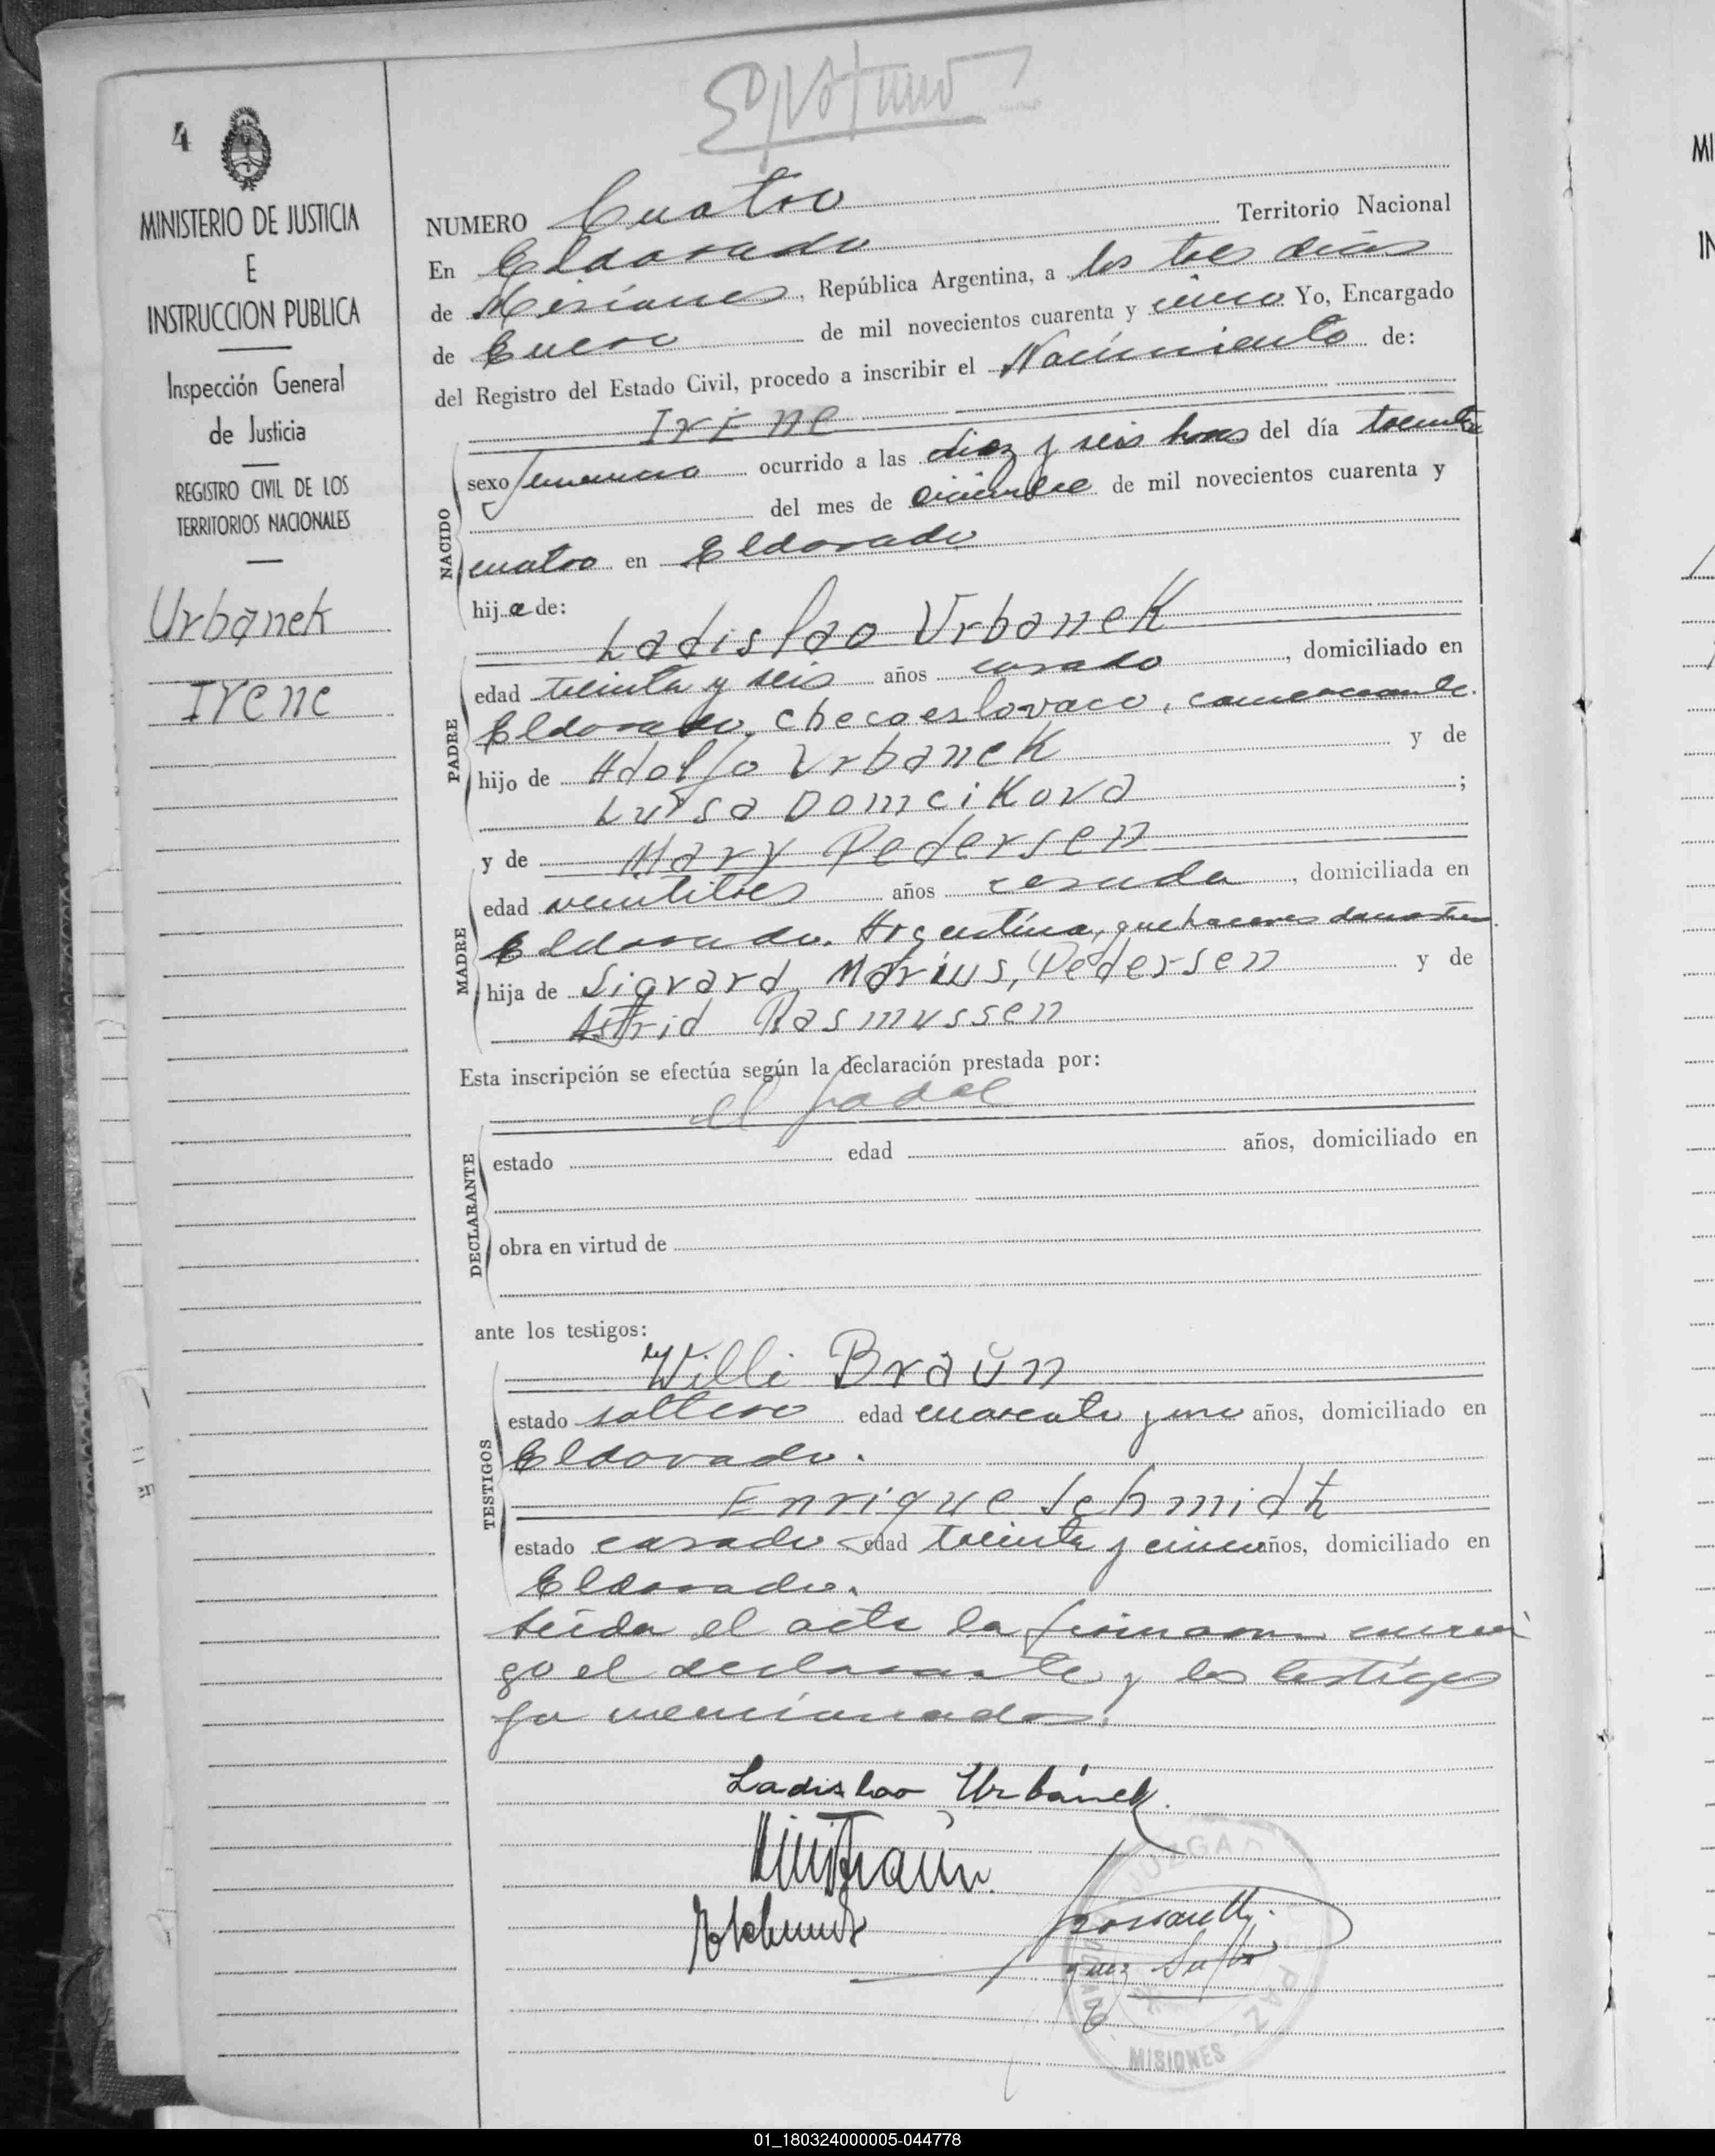 4
MINISTERIO DE JUSTICIA
E
INSTRUCCION PUBLICA
Inspección General
de Justicia
REGISTRO CIVIL DE LOS
TERRITORIOS NACIONALES
Urbanek
Irene
NUMERO Cuatro
En Eldorado Territorio Nacional
de Misiones, República Argentina, a los tres dias
de Enero de mil novecientos cuarenta y cinco Yo, Encargado
del Registro del Estado Civil, procedo a inscribir el Nacimiento de:
IrEne
NACIDO
sexo femenino ocurrido a las diez y seis horas del día treinta
del mes de diciembre de mil novecientos cuarenta y
cuatro en Eldorado
hij a de:
Ladislao Urbanek
PADRE
edad treinta y seis años casado, domiciliado en
Eldorado, checoeslovaco, comerciante.
hijo de Adolfo Urbanek y de
Luisa Domcikova ;
y de Mary Pedersen
MADRE
edad veintitres años casada, domiciliada en
Eldorado. Argentina, quehaceres domesticos.
hija de Sigvard, Marius, Pedersen y de
Astrid Rasmussen
Esta inscripción se efectúa según la declaración prestada por:
el padre
DECLARANTE
estado edad años, domiciliado en
obra en virtud de
ante los testigos:
Willi Braŭn
TESTIGOS
estado soltero edad cuarenta y uno años, domiciliado en
Eldorado.
Enrique Schmidt
estado casado edad treinta y cinco años, domiciliado en
Eldorado.
Leída el acta la firmaron conmi
go el declarante y los testigos
ya mencionados.
Ladislao Urbánek.
JUZGADO
PAZ
MISIONES
Juez Supte
MI
01_180324000005-044778